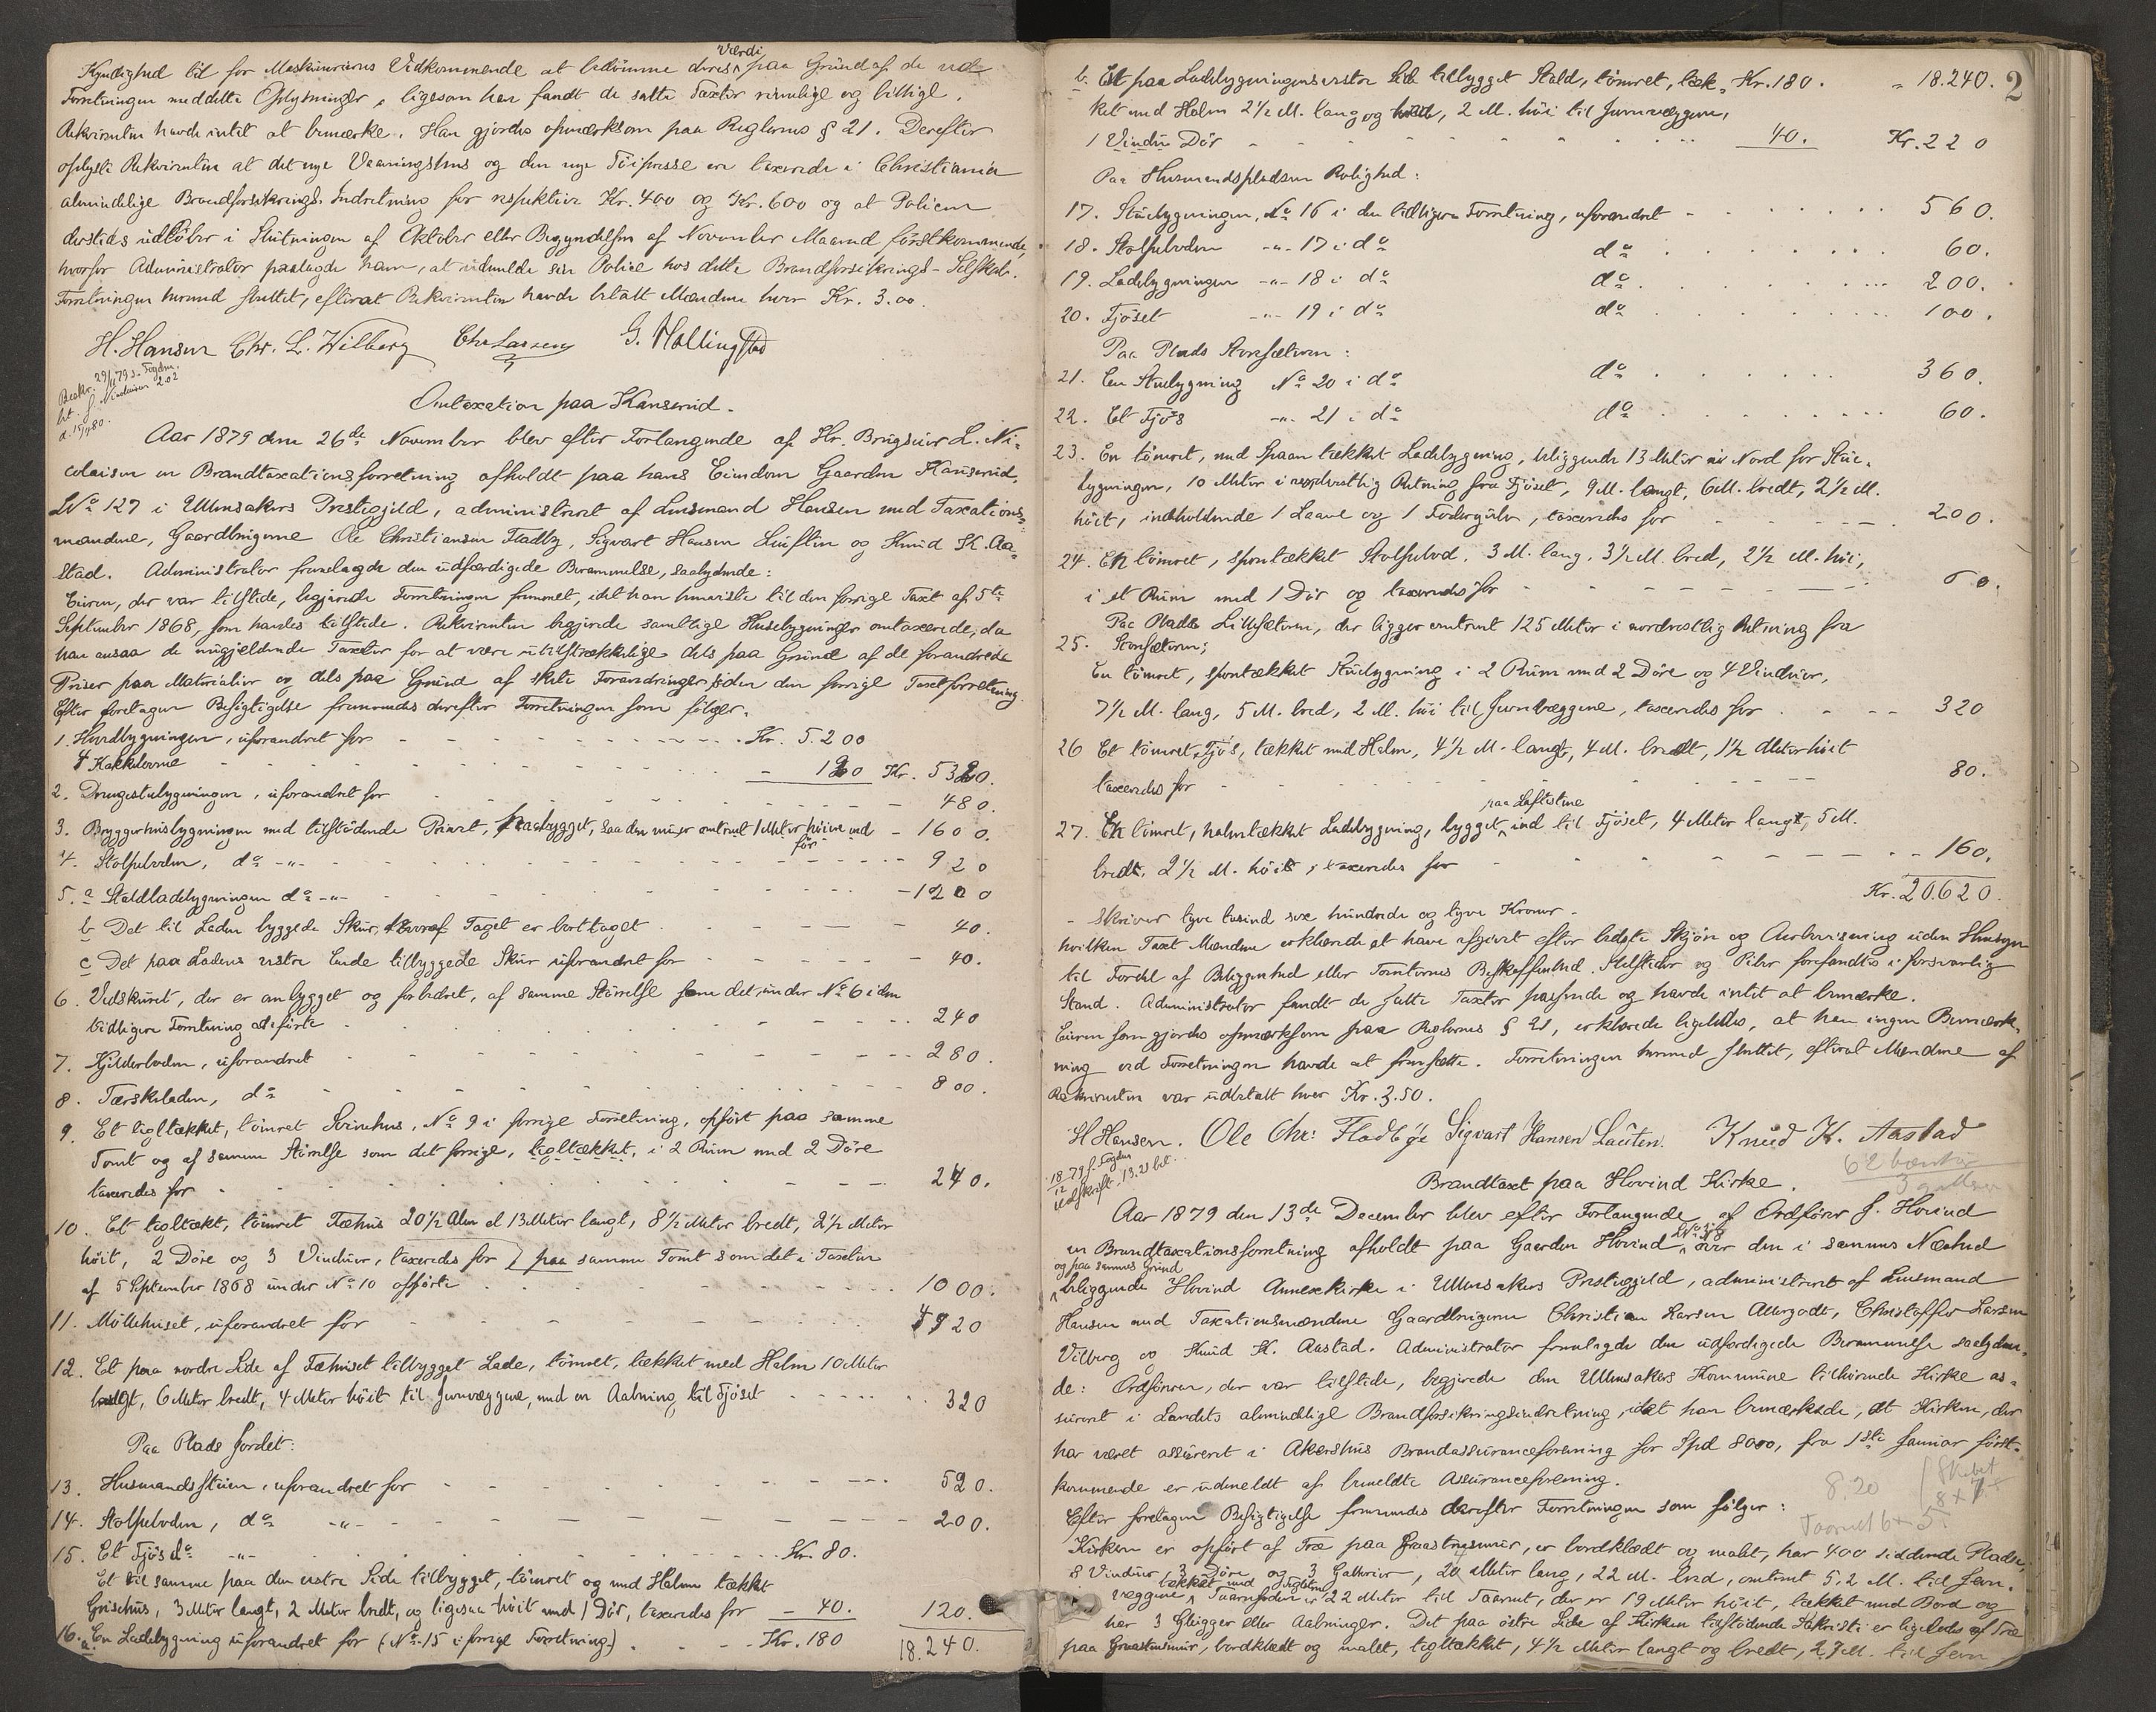 Kyndighed til for Maskineriernes Vedkommende at bedømme deres Værdi paa Grund af de ved
Forretningen meddelte Oplysninger, ligesom han fandt de satte Taxter rimelige og billige.
Rekvirenten havde intet at bemærke. Han gjordes opmærksom paa Reglernes § 21. Derefter
oplyste Rekvirenten at det nye Vaaningshus og den nye Tøipresse ere taxerede i Christiania
almindelige Brandforsikrings-Indretning for respektive Kr. 400 og Kr. 600 og at Policen
dersteds udløber i Slutningen af Oktober eller Begyndelsen af November Maaned førstkommende,
hvorfor Administrator paalagde ham, at udmelde sin Police hos dette Brandforsikrings-Selskab.
Forretningen hermed sluttet, efterat Rekvirenten havde betalt Mændene hver Kr. 3.00.
H. Hansen Chr. L. Wilberg Chr Larsen G. Hallingstad
Omtaxation paa Kanserud.
Aar 1879 den 26de November blev efter Forlangende af Hr. Brugseier L. Ni-
colaisen en Brandtaxationsforretning afholdt paa hans Eiendom Gaarden Kanserud,
LNo 127 i Ullensakers Præstegjeld, administreret af Lensmand Hansen med Taxations-
mændene, Gaardbrugerne Ole Christiansen Fladby, Sigvart Hansen og Knud K. Aa-
stad. Administrator fremlagde den udfærdigede Berammelse, saalydende:
Eieren, der var tilstede, begjærede Forretningen fremmet, idet han henviste til den forrige Taxt af 5te
September 1868, som havdes tilstede. Rekvirenten begjærede samtlige Husebygninger omtaxerede, da
han ansaa de nugjeldende Taxter for at være utilstrækkelige dels paa Grund af de forandrede
Priser paa Materialier og dels paa Grund af skete Forandringer siden den forrige Taxtforretning.
Efter foretagen Besigtigelse fremmedes derefter Forretningen som følger.
1. Hovedbygningen, uforandret for Kr. 5.200
4 Kakkelovne - 120 Kr. 5320.
2. Drengestubygningen, uforandret for - 480.
3. Bryggerhusbygningen med tilstødende Privet, paabygget, saa den nu er omtrent 1 Meter høiere end før - 1600.
4. Stolpeboden, do -"- 920
5. a Staldladebygningen do -"- - 1200
b Det til Laden byggede Skur, hvoraf Taget er borttaget - 40.
c Det paa Ladens vestre Ende tilbyggede Skur uforandret for - 40.
6. Vedskuret, der er ombygget og forbedret, af samme Størrelse som det under No 6 i den
tidligere Forretning anførte 240
7. Kjelderboden, uforandret 280.
8. Tærskeladen, do 800.
9. Et tegltækket, tømret Svinehus, No 9 i forrige Forretning, opført paa samme
Tomt og af samme Størrelse som det forrige, tegltækket, i 2 Rum med 2 Døre
taxeredes for 240.
10. Et tegltækt, tømret Fæhus 20½ Alen el 13 Meter langt, 8½ Meter bredt, 2½ Meter
høit, 2 Døre og 3 Vinduer, taxeredes for / paa samme Tomt som det i Taxten
af 5 September 1868 under No 10 opførte 1000.
11. Møllehuset, uforandret for 4920
12. Et paa nordre Side af Fæhuset tilbygget Lade, tømret, tækket med Halm 10 Meter
langt, 6 Meter bredt, 4 Meter høit til Jernvæggene, med en Aabning til Fjøset 320
Paa Plads Jordet:
13. Husmandsstuen, uforandret for 520.
14. Stolpeboden, do -"- 200.
15. Et Fjøs do -"- Kr. 80.
Et til samme paa den vestre Side tilbygget, tømret og med Halm tækket
Grisehus, 3 Meter langt, 2 Meter bredt, og ligesaa høit med 1 Dør, taxeredes for - 40. 120.
16. a. En Ladebygning uforandret for (No 15 i forrige Forretning.) Kr. 180 18.240.
2
b. Et paa Ladebygningens vestre Side tilbygget Stald, tømret, tæk- Kr. 180. " 18.240.
ket med Halm 2½ M. lang og bred, 2 M. høi til Jernvæggene,
1 Vindu Dør 40. Kr. 220
Paa Husmandspladsen Rolighed:
17. Stuebygningen, No 16 i den tidligere Forretning, uforandret 560.
18. Stolpeboden -"- 17 i do do 60.
19. Ladebygningen -"- 18 i do do 200.
20. Fjøset -"- 19 i do do 100.
Paa Plads Storsæteren:
21. En Stuebygning No 20 i do do 360.
22. Et Fjøs -"- 21 i do do 60.
23. En tømret, med Spaan tækket Ladebygning, beliggende 13 Meter Nord for Stue-
bygningen, 10 Meter i nordvestlig Retning fra Fjøset, 9 M. langt, 6 M. bredt, 2½ M.
høit, indeholdende 1 Laave og 1 Fodergulv, taxeredes for 200.
24. En tømret, spontækket Stolpebod, 3 M. lang, 3½ M. bred, 2½ M. høi,
i et Rum med 1 Dør og taxeredes for
Paa Plads Lillesæteren, der ligger omtrent 125 Meter i nordvestlig Retning fra
25. Storsæteren;
En tømret, spontækket Stuebygning i 2 Rum med 2 Døre og 4 Vinduer,
7½ M. lang, 5 M. bred, 2 M. høi til Jernvæggene, taxeredes for 320
26 Et tømret Fjøs, tækket med Halm, 4½ M. langt, 4 M. bredt, 1½ Meter høit
taxeredes for 80.
27. En tømret, halmtækket Ladebygning, bygget paa Loftstene ind til Fjøset, 4 Meter langt, 5 M.
bredt, 2½ M. høit, taxeredes for 160.
Kr. 20.620.
- skriver tyve tusind sex hundrede og tyve Kroner -
hvilken Taxt Mændene erklærede at have afgivet efter bedste Skjøn og Overbevisning uden Hensyn
til Fordel af Beliggenhed eller Tomternes Beskaffenhed. Ildsteder og Piber forefandtes i forsvarlig
Stand. Administrator fandt de satte Taxter passende og havde intet at bemærke.
Eieren som gjordes opmærksom paa Reglernes § 21, erklærede ligeledes, at han ingen Bemærk-
ning ved Forretningen havde at fremsætte. Forretningen hermed sluttet, efterat Mændene af
Rekvirenten var udbetalt hver Kr. 3.50.
H Hansen. Ole Chr: Fladbye Sigvart Hansen Lauten. Knud K. Aastad
62 bænke
Brandtaxt paa Hovind Kirke.
Aar 1879 den 13de December blev efter Forlangende af Ordfører J. Hovind
en Brandtaxationsforretning afholdt paa Gaarden Hovind over den i sammes Nærhed
og paa sammes Grund
beliggende Hovind Annexkirke i Ullensakers Præstegjeld, administreret af Lensmand
Hansen med Taxationsmændene Gaardbrugerne Christian Larsen Allergodt, Christoffer Larsen
Vilberg og Knud K. Aastad. Administrator fremlagde den udfærdigede Berammelse saalyden-
de: Ordføreren, der var tilstede, begjærede den Ullensakers Kommune tilhørende Kirke as-
sureret i Landets almindelige Brandforsikringsindretning, idet han bemærkede, at Kirken, der
har været assureret i Akershus Brandassuranceforening for Spd 8000, fra 1ste Januar først-
kommende er udmeldt af bemeldte Assuranceforening.
Efter foretagen Besigtigelse fremmedes derefter Forretningen som følger:
Kirken er opført af Træ paa Graastensmur, er bordklædt og malet, har 400 siddende Pladse,
8 Vinduer, 3 Døre og 3 Gallerier, 20 Meter lang, 22 M. bred, omtrent 5,2 M. til Jern-
væggene, tækket med Teglsten, Taarnfoden er 22 Meter til Taarnet, der er 19 Meter høit, tækket med Bord og
har 3 Glugger eller Aabninger. Det paa østre Side af Kirken tilstødende Sakristi er ligeledes af Træ
paa Graastensmur, bordklædt og malet, tegltækket, 4½ Meter langt og bredt, 2,7 M. til Jern